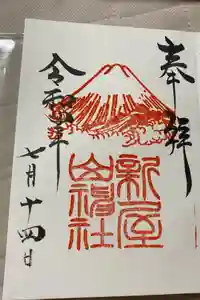 奉拝
新屋
山神社
令和 年
七月十四日